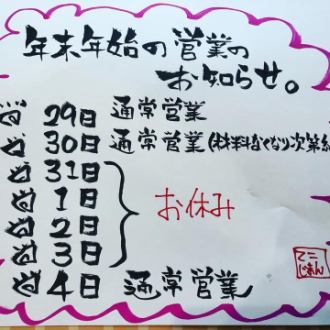 年末年始の営業の
お知らせ。
29日 通常営業
30日 通常営業(材料なくなり次第
31日
1日
2日
3日
お休み
4日 通常営業